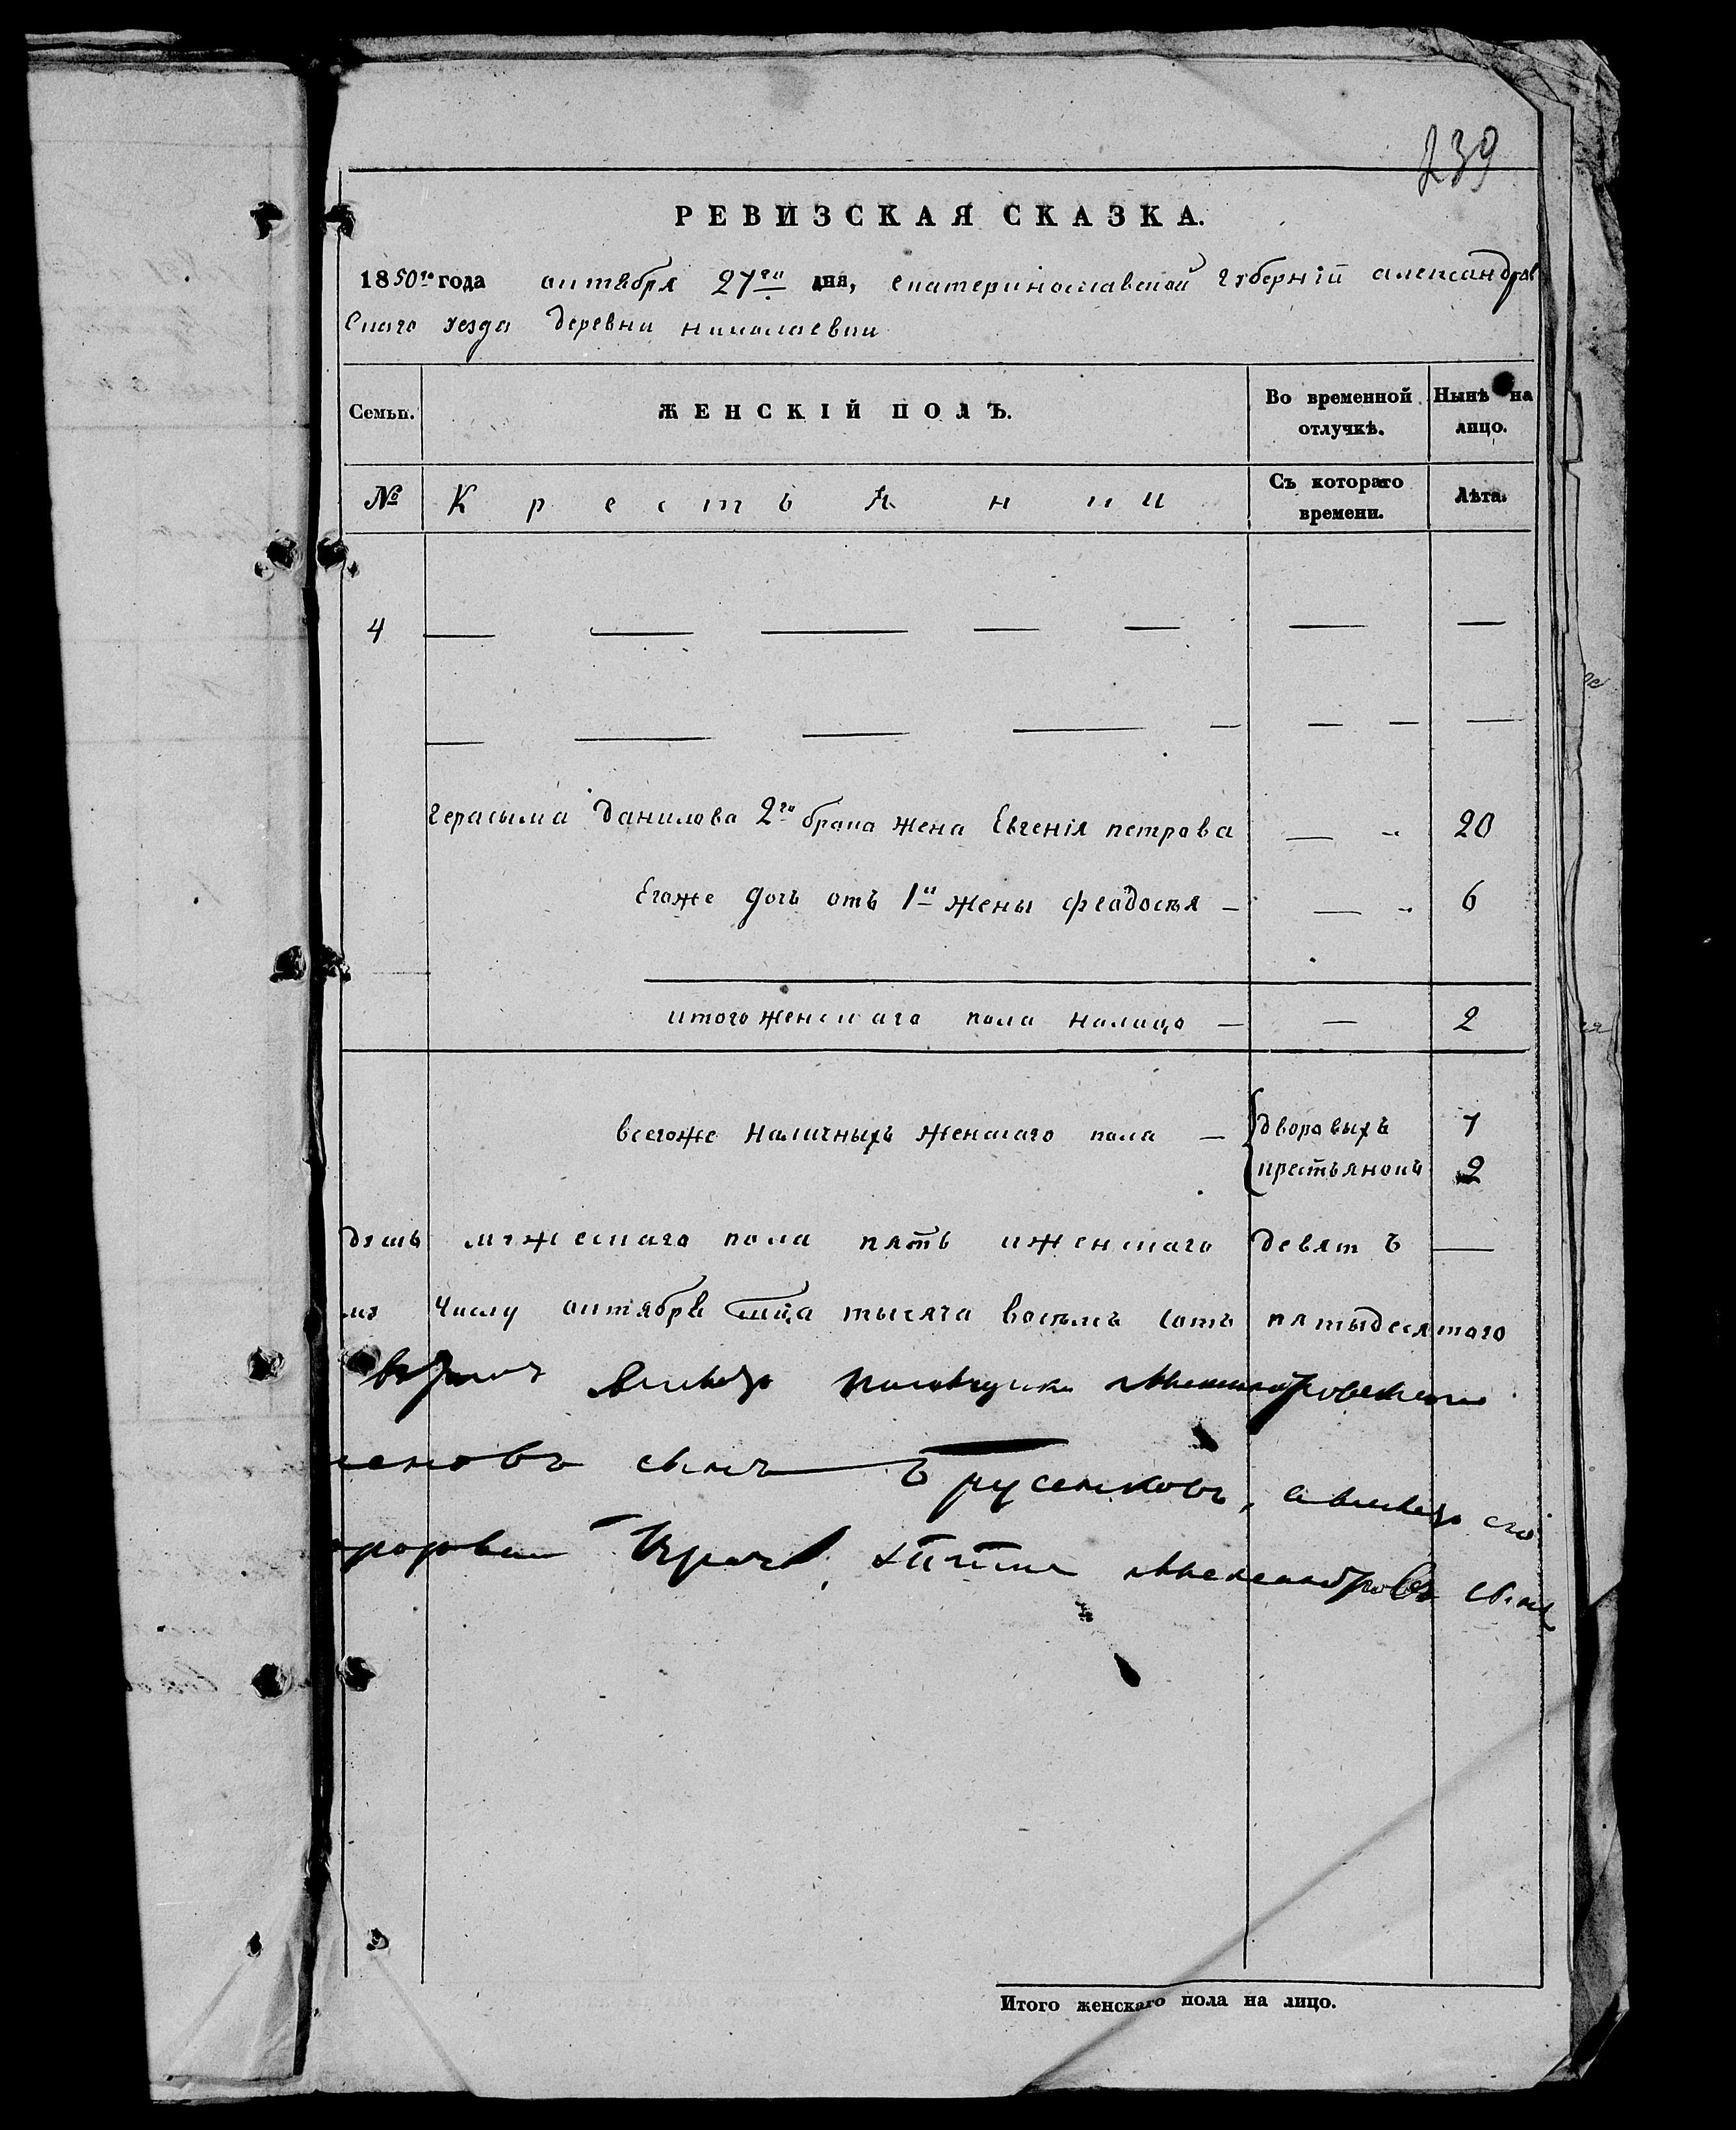 239
РЕВИЗСКАЯ СКАЗКА.
1850го года октября 27го дня, екатеринославской губерніи александров
скаго уезда деревни николаевки
Семьи. ЖЕНСКІЙ ПОЛЪ. Во временной отлучкѣ. Нынѣ на лицо.
№ Крестьянки Съ котораго времени. Лѣта.
4 — — — — — — —
— — — — — — — —
герасыма данилова 2го брака жена Евгенія петрова — 20
Егоже дочь отъ 1й жены феадосья — — 6
итого женскаго пола налицо — — 2
всегоже наличныхъ женскаго пола — дворовыхъ 7
крестьянокъ 2
душъ мужескаго пола пять иженскаго девятъ —
числу октября мца тысяча восемъ сотъ пятыдесятого
сынъ Брусенковъ, его
александровъ сынъ
Итого женскаго пола на лицо.